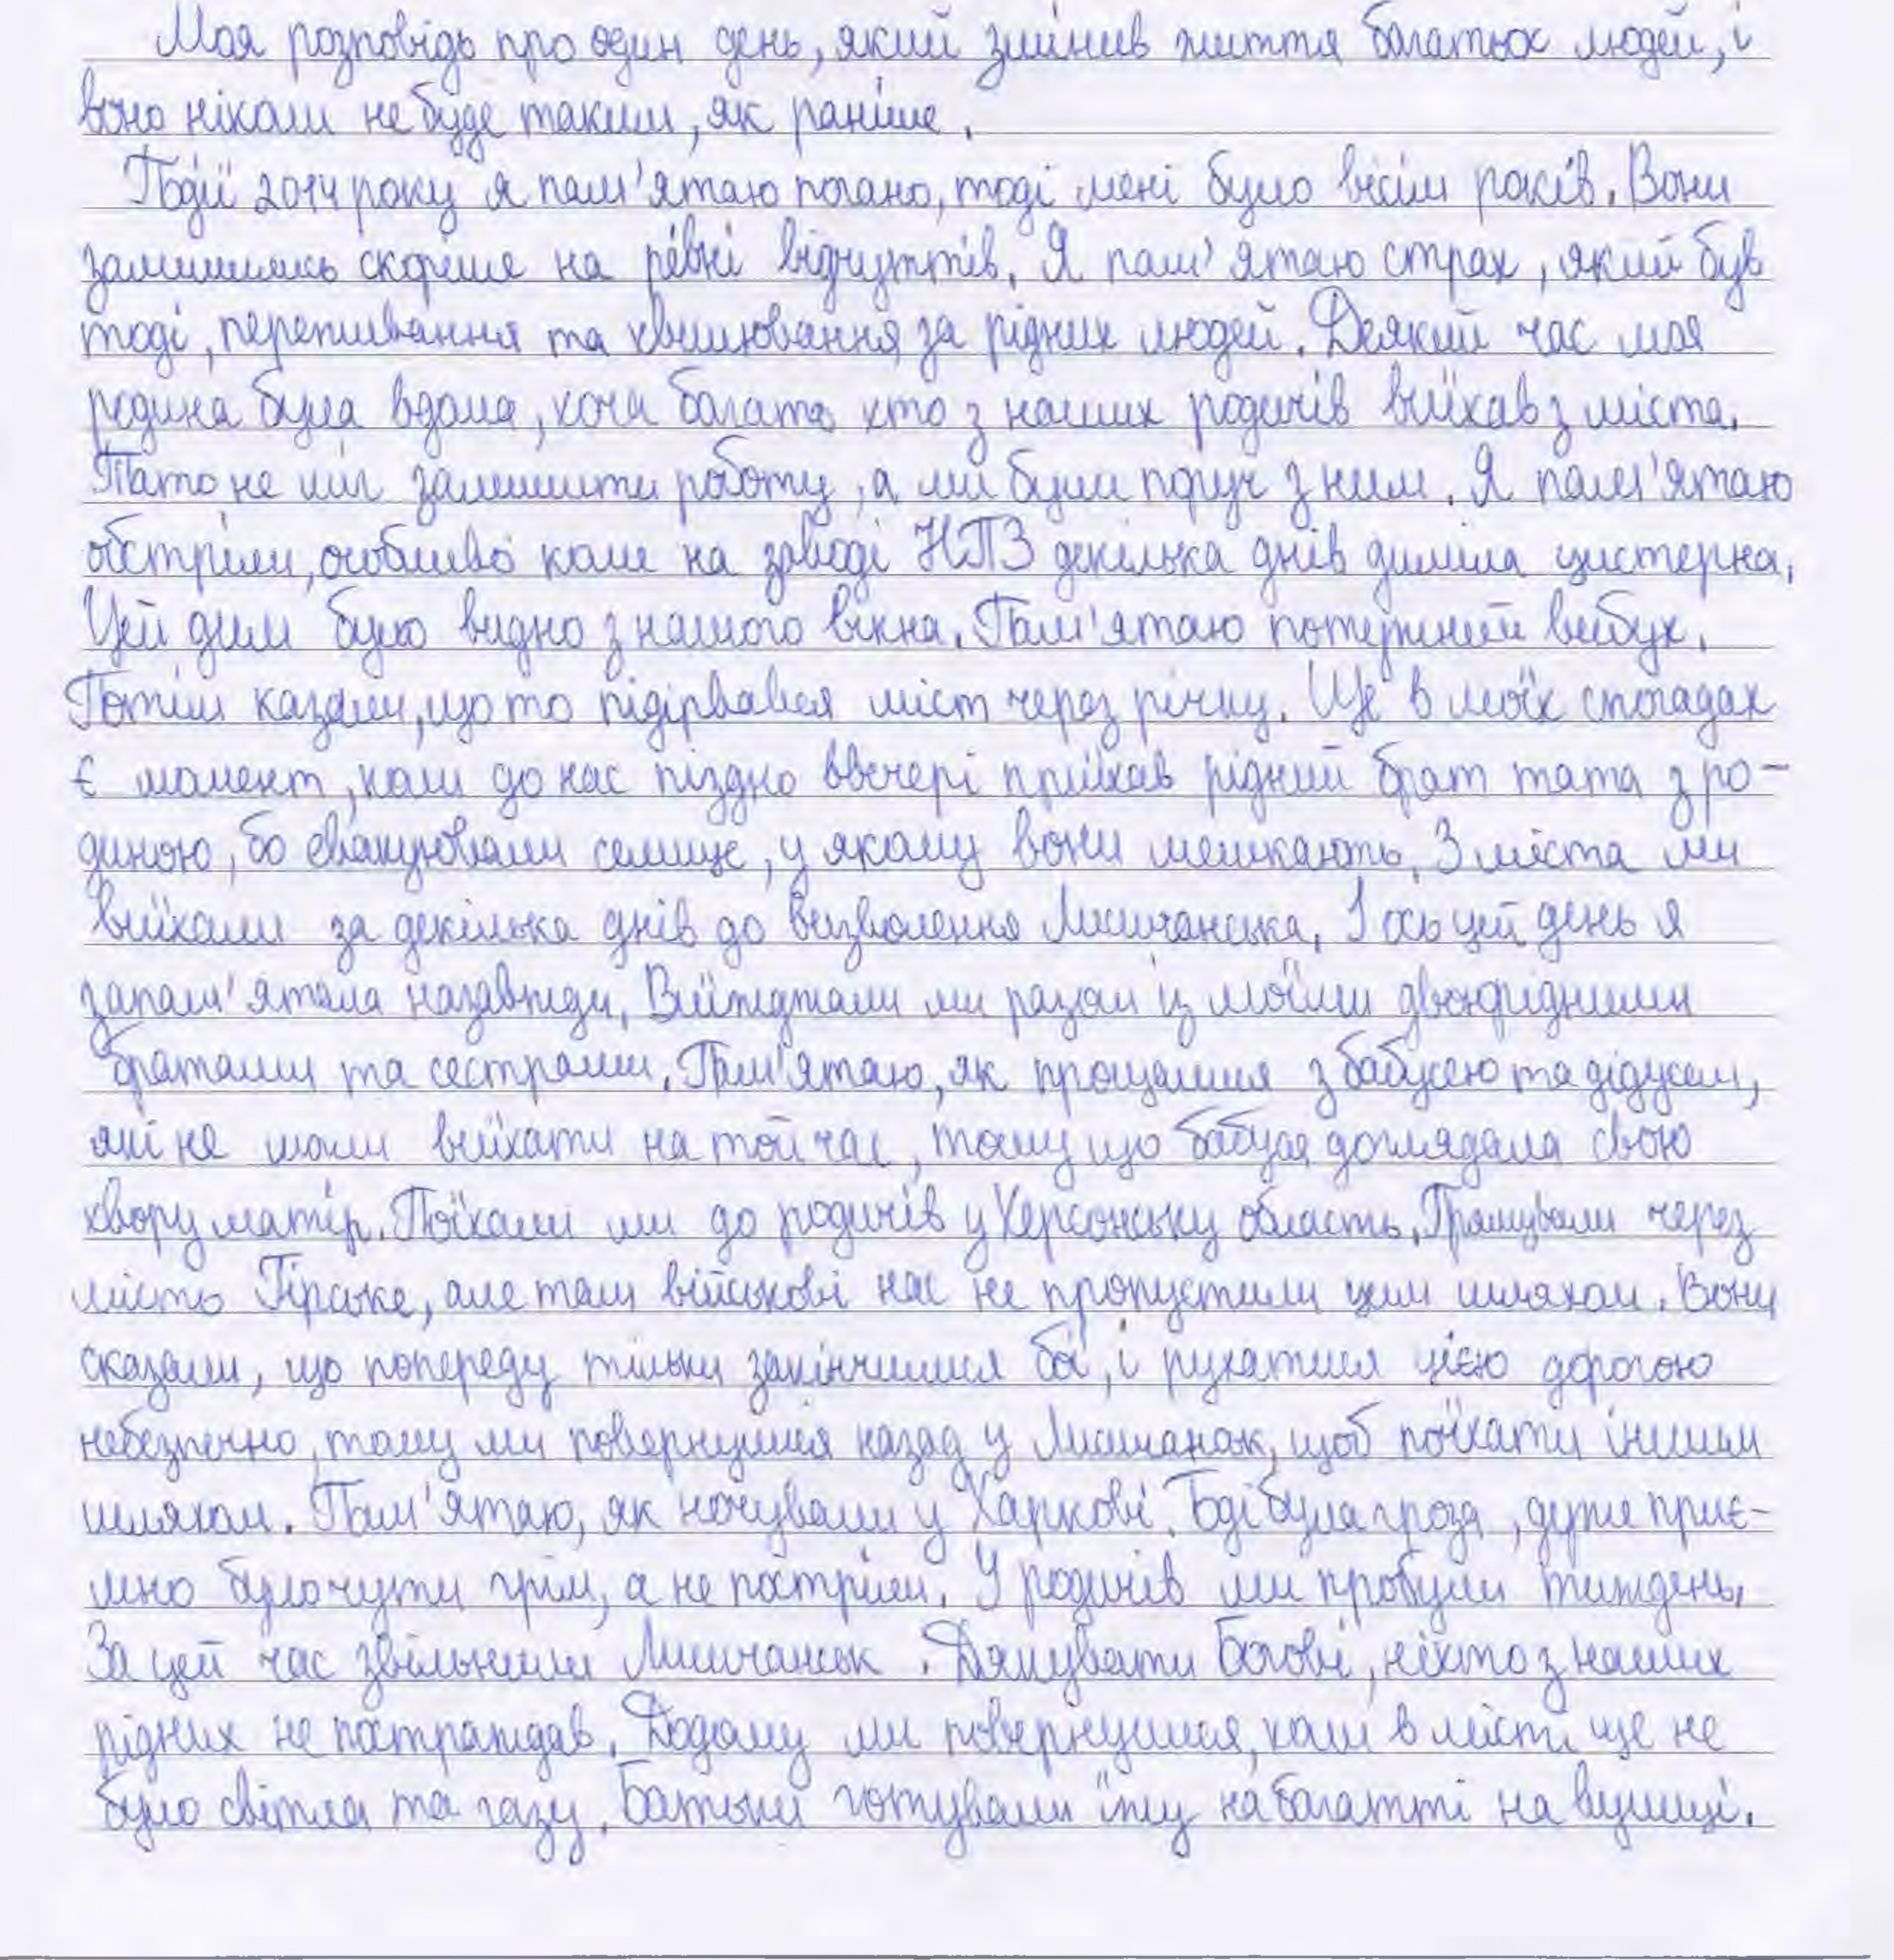 Моя розповідь про один день, який змінив життя багатьох людей, і
воно ніколи не буде таким, як раніше.
Події 2014 року я пам'ятаю погано, тоді мені було вісім років. Вони
залишились скоріше на рівні відчуттів. Я пам'ятаю страх, який був
тоді, переживання та хвилювання за рідних людей. Деякий час моя
родина була вдома, хоча багато хто з наших родичів виїхав з міста.
Тато не міг залишити роботу, а ми були поруч з ним. Я пам'ятаю
обстріли, особливо коли на заводі НПЗ декілька днів диміла цистерна.
Цей дим було видно з нашого вікна. Пам'ятаю потужний вибух.
Потім казали, що то підірвався міст через річку. Ще в моїх спогадах
є момент, коли до нас пізно ввечері приїхав рідний брат тата з ро-
диною, бо евакуювали селище, у якому вони мешкають. З міста ми
виїхали за декілька днів до визволення Лисичанська. І ось цей день я
запам'ятала назавжди. Виїжджали ми разом із моїми двоюрідними
братами та сестрами. Пам'ятаю, як прощалися з бабусею та дідусем,
які не мали виїхати на той час, тому що бабуся доглядала свою
хвору матір. Поїхали ми до родичів у Херсонську область. Прямували через
місто Гірське, але там військові нас не пропустили цим шляхом. Вони
сказали, що попереду тільки закінчилися бої, і рухатися цією дорогою
небезпечно, тому ми повернулися назад у Лисичанск, щоб поїхати іншим
шляхом. Пам'ятаю, як ночували у Харкові. Тоді була гроза, дуже приє-
мно було чути грім, а не постріли. У родичів ми пробули тиждень.
За цей час звільнили Лисичанськ. Дякувати Богові, ніхто з наших
рідних не постраждав. Додому ми повернулися, коли в місті ще не
було світла та газу. Батьки готували їжу на багатті на вулиці.